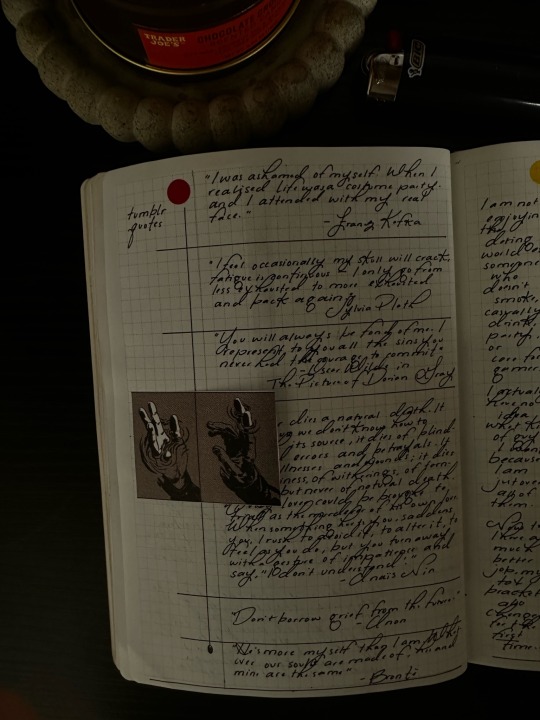 TRADER
JOE'S
CHOCOLATE
BIC
tumblr
quotes
"I was ashamed of myself when I
realised life was a costume party
and I attended with my real
face."
- Franz Kafka
"I feel occasionally my skull will crack,
fatigue is continuous - I only go from
less exhausted to more exhausted
and back again"
Sylvia Plath
"You will always be fond of me. I
represent to you all the sins you
never had the courage to commit"
- Oscar Wilde in
The Picture of Dorian Gray
dies a natural death. It
we don't know how to
its source, it dies of blind-
errors and betrayals. It
illnesses and wounds; it dies
of witherings, of tarn-
but never of natural death.
lover could be brought to
as the murderer of his own love.
When something hurts you, saddens
you, I rush to avoid it, to alter it, to
feel as you do, but you turn away
with a gesture of impatience and
say, "I don't understand".
- Anais Nin
"Don't borrow grief from the future."
- Anon
"He's more myself than I am.
our souls are made of, his and
mine are the same"
- Brontë
I am not
enjoying
the
dating
world
someone
who
doesn't
smoke,
casually
drink,
party,
or
care for
games
I actually
have no
idea
what
of guy
because
I am
just over
all of
them.
much
better
job, my
also
for the
first
time.